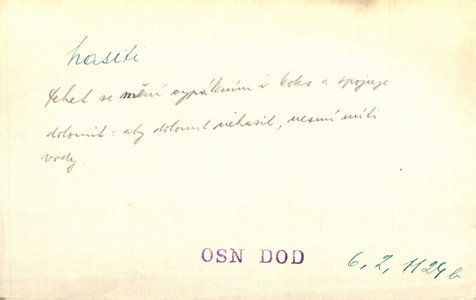 hasiti
dehet se mění vypálením v koks a spojuje
dolomit: aby dolomit nehasil, nesmí míti
vody.
OSN DOD
6, 2, 1124 b